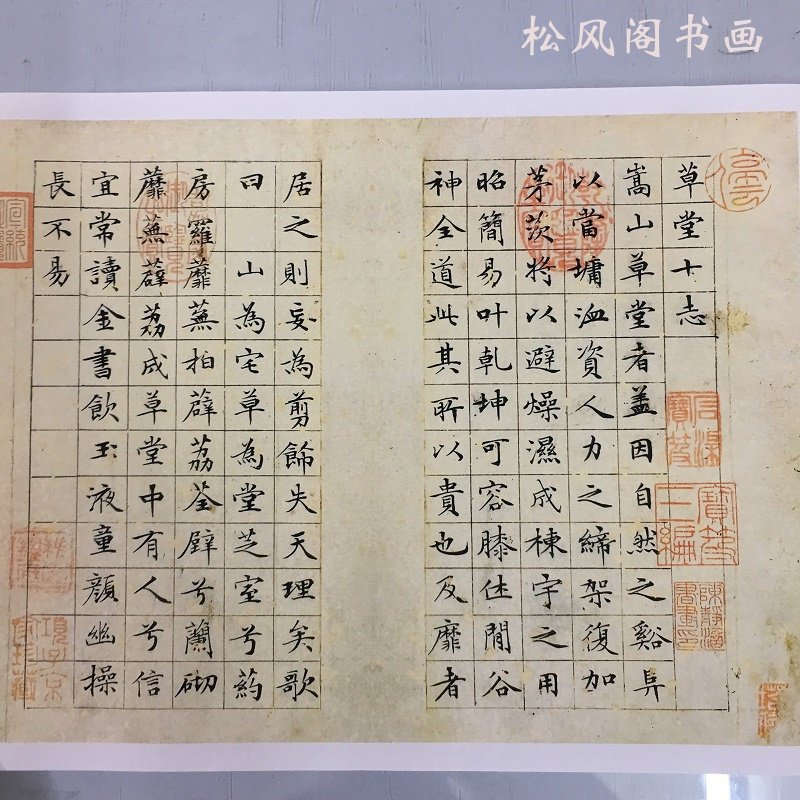 松风阁书画
草堂十志
嵩山草堂者蓋因自然之谿阜
以當墉洫資人力之締架復加
茅茨将以避燥濕成棟宇之用
昭簡易叶乾坤可容膝休閒谷
神全道此其所以貴也及靡者
居之則妄為剪餙失天理矣歌
曰 山為宅草為堂芝室兮葯
房羅蘼蕪拍薜荔荃壁兮蘭砌
蘼蕪薜荔成草堂中有人兮信
宜常讀金書飲玉液童顏幽操
長不易
石渠寶笈
寶笈三編
項子京家珍藏